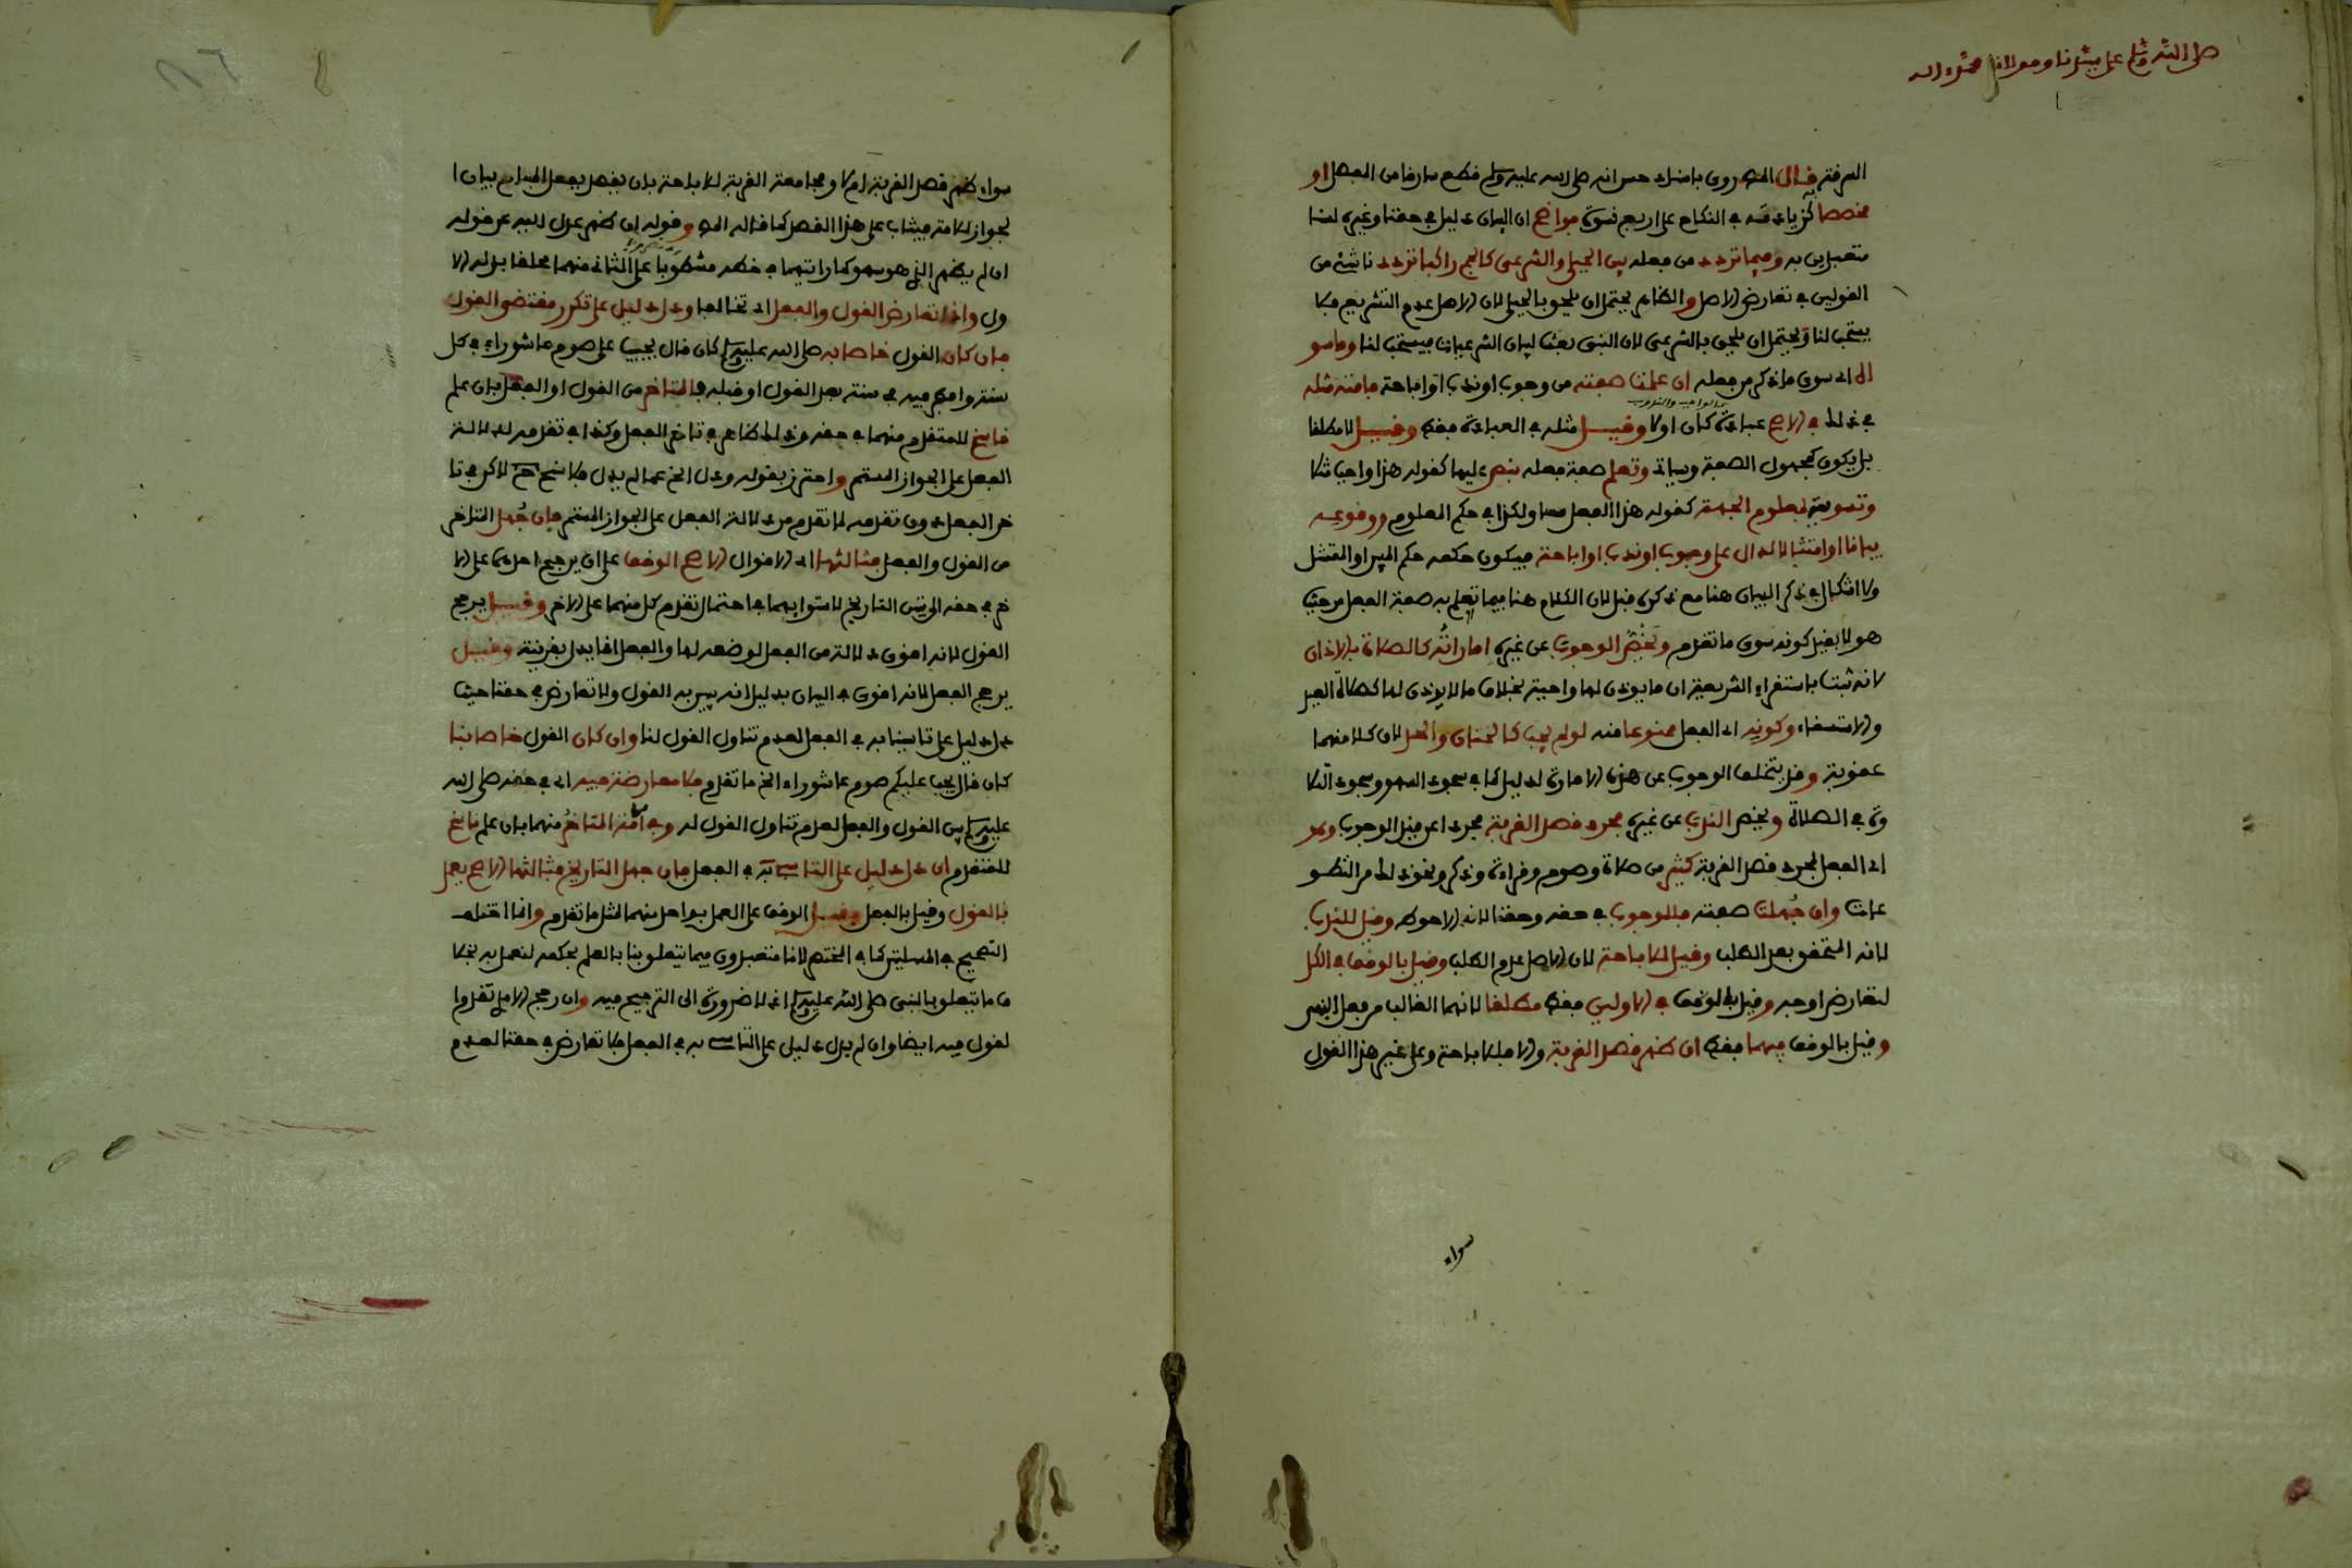 صلى الله وسلم على سيدنا ومولانا محمد واله
السرقة قال المص روى باسناد حسن انه صلى الله عليه وسلم قطع سارقا من المفصل او
مخصصا كزيادته في النكاح على اربع نسوة فواضح ان البيان دليل في حقنا وغيره لسنا
متعبدين به وفيما تردد من فعله بين الجبلي والشرعي كالحج راكبا تردد ناشئ من
القولين في تعارض الاصل والظاهر يحتمل ان يلحق بالجبلي لان الاصل عدم التشريع فلا
يستحب لنا ويحتمل ان يلحق بالشرعي لان النبي بعث لبيان الشرعيات فيستحب لنا وما سو
اه اي سوى ما ذكر من فعله ان علمت صفته من وجوب او ندب او اباحة فامته مثله
في ذلك في الاصح عبادة كان او لا وقيل مثله في العبادة فقط وقيل لا مطلقا
بل يكون كمجهول الصفة وسياتي وتعلم صفة فعله بنص عليها كقوله هذا واجب مثلا
وتسوية بمعلوم الجهة كقوله هذا الفعل مساو لكذا في حكم المعلوم ووقوعه
بيانا او امتثالا لدال على وجوب او ندب او اباحة فيكون حكمه حكم المبين او الممتثل
ولا اشكال في ذكر البيان هنا مع ذكره قبل لان الكلام هنا فيما تعلم به صفة الفعل من حيث
هو لا بقيد كونه سوى ما تقدم ويخص الوجوب عن غيره اماراته كالصلاة بالاذان
لانه ثبت باستقراء الشريعة ان ما يوذن لها واجبة بخلاف ما لا يوذن لها كصلاة العيد
والاستسقاء وكونه اي الفعل ممنوعا منه لو لم يجب كالختان والحد لان كلا منهما
عقوبة وقد يتخلف الوجوب عن هذه الامارة لدليل كما في سجود السهو وسجود التلا
وة في الصلاة ويخص الندب عن غيره مجرد قصد القربة مجردا عن قيد الوجوب وهو
اي الفعل لمجرد قصد القربة كثير من صلاة وصوم وقراءة وذكر ونحو ذلك من التطو
عات وان جهلت صفته فللوجوب في حقه وحقنا لانه الاحوط وقيل للندب
لانه المتحقق بعد الطلب وقيل للاباحة لان الاصل عدم الطلب وقيل بالوقف في الكل
لتعارض اوجه وقيل بالوقف في الاولين فقط مطلقا لانهما الغالب من فعل النبي
وقيل بالوقف فيهما فقط ان ظهر قصد القربة والا فللاباحة وعلى غير هذا القول
سواء
سواء ظهر قصد القربة ام لا ومجامعة القربة للاباحة بان يقصد بفعل المباح بيان ا
لجواز للامة فيثاب على هذا القصد كما قاله المص وقوله ان ظهر عدل اليه عن قوله
ان لم يظهر الذي هو سهو كما رايتهما في خطه مشطوبا على الثاني منهما ملحقا بدله الا
ول واذا تعارض القول والفعل اي تخالفا ودل دليل على تكرر مقتضى القول
فان كان القول خاصا به صلى الله عليه وسلم كان قال يجب على صوم عاشوراء في كل
سنة وافطر فيه في سنة بعد القول او قبله فالمتاخر من القول او الفعل بان علم
ناسخ للمتقدم منهما في حقه وذلك ظاهر في تاخر الفعل وكذا في تقدمه لدلالة
الفعل على الجواز المستمر واحترز بقوله ودل الخ عما لم يدل فلا نسخ ح لاكن في تا
خر الفعل دون تقدمه لما تقدم من دلالة الفعل على الجواز المستمر فان جهل المتاخر
من القول والفعل فثالثها اي الاقوال الاصح الوقف على ان يرجح احدهما على الا
خر في حقه الى تبين التاريخ لاستوايهما في احتمال تقدم كل منهما على الاخر وقيل يرجح
القول لانه اقوى دلالة من الفعل لوضعه لها والفعل انما يدل بقرينة وقيل
يرجح الفعل لانه اقوى في البيان بدليل انه يبين به القول ولا تعارض في حقنا حيث
دل دليل على تاسينا به في الفعل لعدم تناول القول لنا وان كان القول خاصا بنا
كان قال يجب عليكم صوم عاشوراء الخ ما تقدم فلا معارضة فيه اي في حقه صلى الله
عليه وسلم بين القول والفعل لعدم تناول القول له وفي الامة المتاخر منهما بان علم ناسخ
للمتقدم ان دل دليل على التاسي به في الفعل فان جهل التاريخ فثالثها الاصح يعمل
بالقول وقيل بالفعل وقيل الوقف على العمل بواحد منهما لمثل ما تقدم وانما اختلف
التصحيح في المسلتين كما في المختصر لانا متعبدون فيما يتعلق بنا بالعلم بحكمه لنعمل به بخلا
ف ما يتعلق بالنبي صلى الله عليه وسلم اذ لا ضرورة الى الترجيح فيه وان رجح الامدي تقدم ا
لقول فيه ايضا وان لم يدل دليل على التاسي به في الفعل فلا تعارض في حقنا لعدم